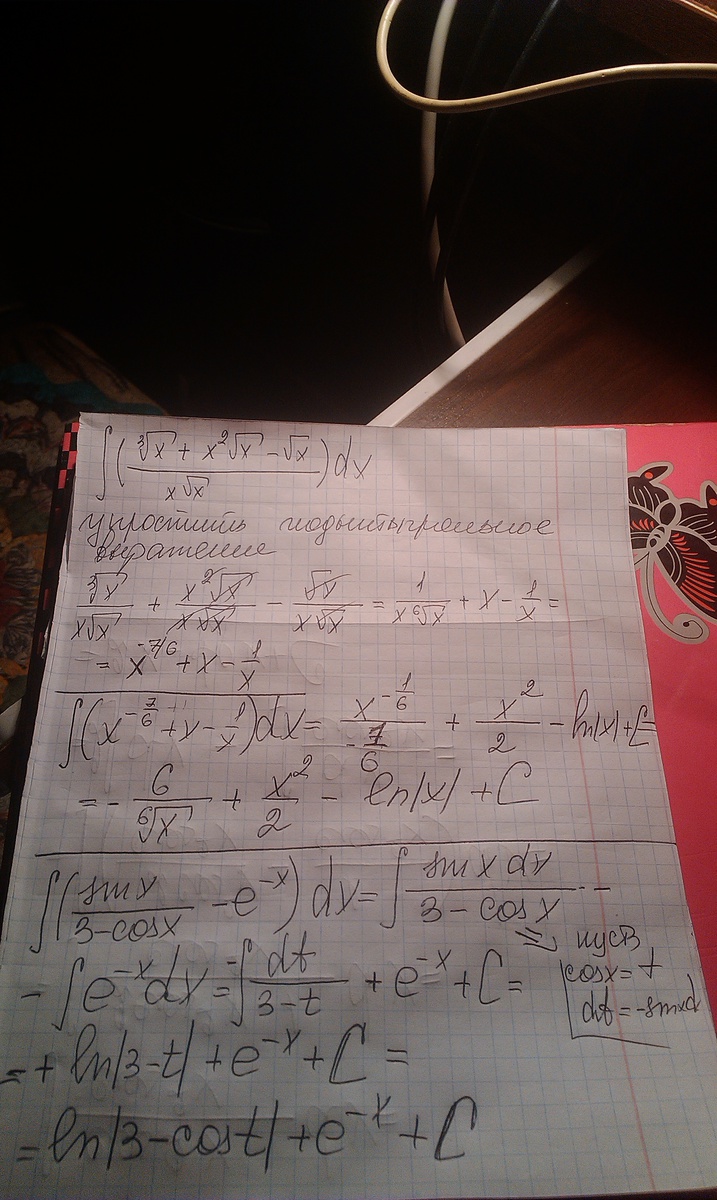 ∫(∛x + x²√x − √x / x√x)dx
упростить подынтегральное
выражение
∛x / x√x + x²√x / x√x − √x / x√x = 1 / x⁶√x + x − 1/x =
= x^(-7/6) + x − 1/x
∫(x^(-7/6) + x − 1/x)dx = x^(-1/6) / (-1/6) + x²/2 − ln|x| + C =
= − 6 / ⁶√x + x²/2 − ln|x| + C
∫(sinx / 3-cosx − e^(-x)) dx = ∫ sinx dx / 3 − cosx −
− ∫e^(-x)dx = −∫ dt / 3-t + e^(-x) + C =
⇒ пусть
cosx = t
dt = -sinxd
= + ln|3-t| + e^(-x) + C =
= ln|3-cost| + e^(-x) + C